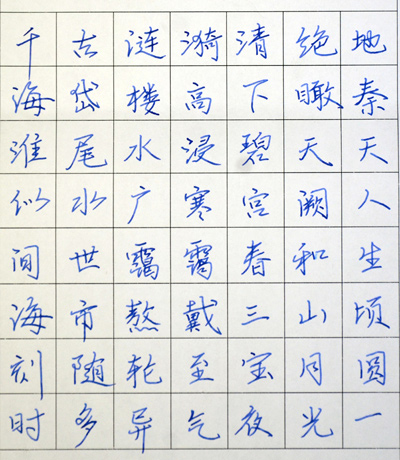 千古涟漪清绝地
海岱楼高下瞰秦
淮尾水浸碧天天
似水广寒宫阙人
间世霭霭春和生
海市熬戴三山顷
刻随轮至宝月圆
时多异气夜光一